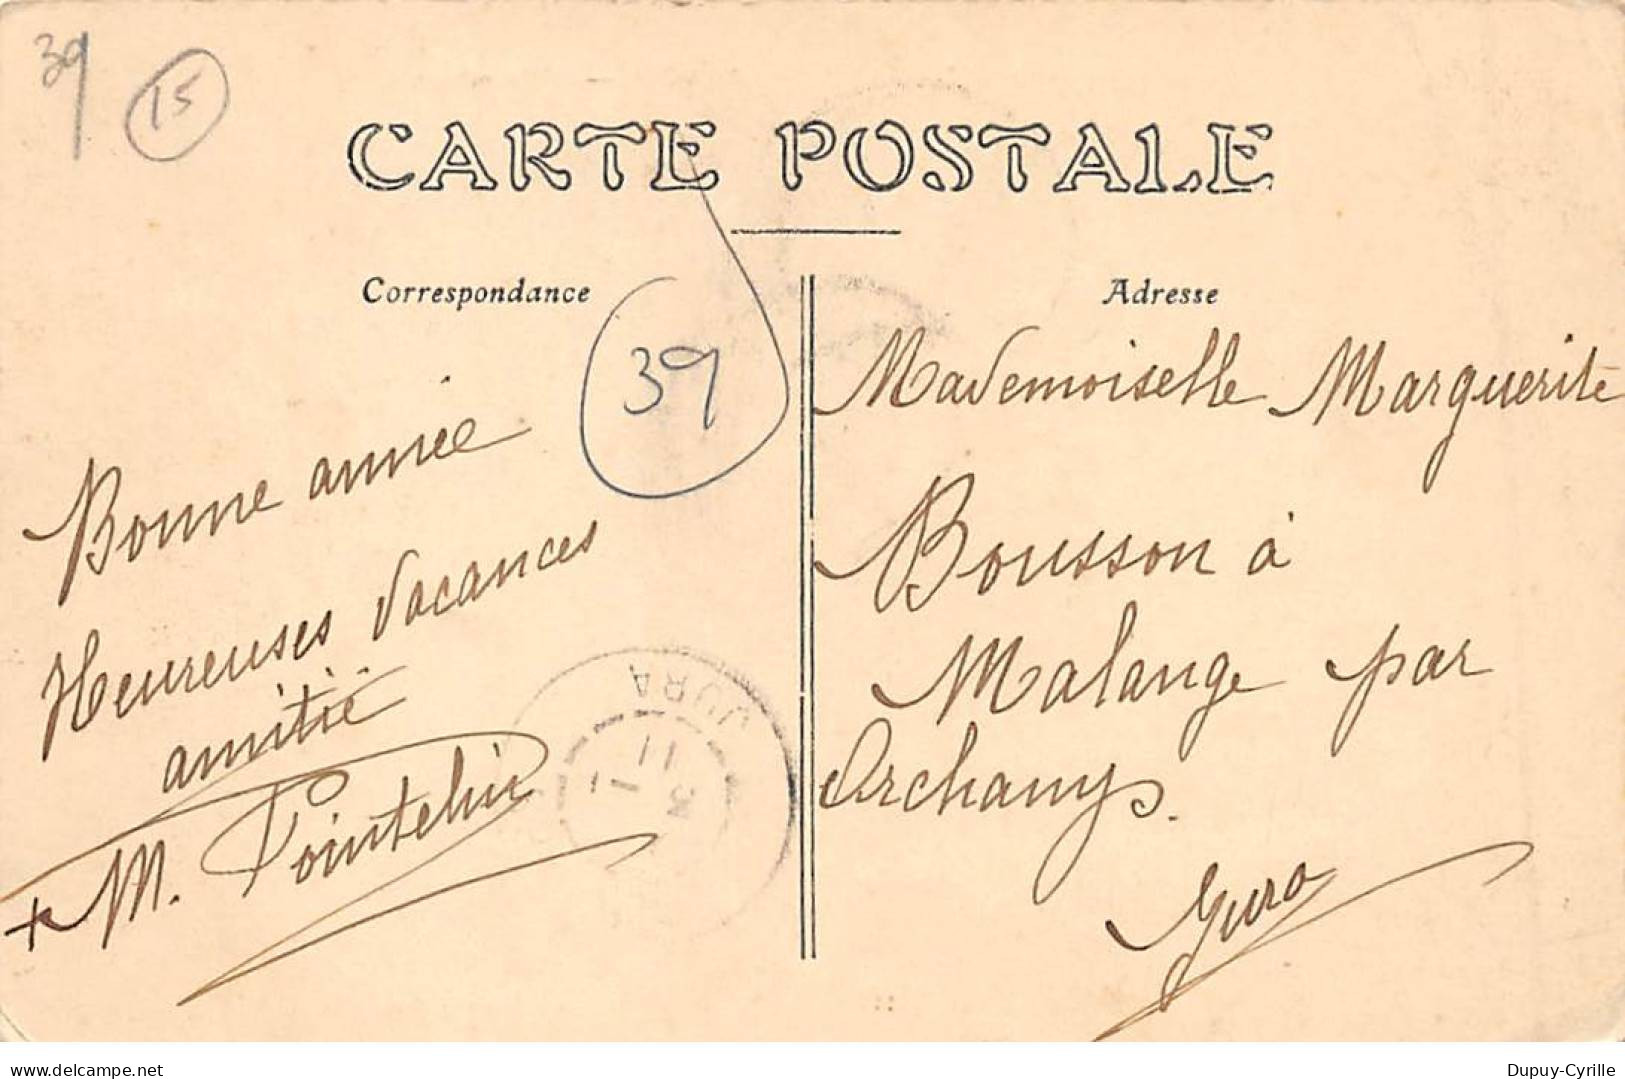 39
15
CARTE POSTALE
Correspondance
Adresse
39
Bonne année
Heureuses Vacances
amitié
M. Pointelin
Mademoiselle Marguerite
Bousson à
Malange par
Orchamps.
Jura
JURA
3 - 1
11
www.delcampe.net
Dupuy-Cyrille